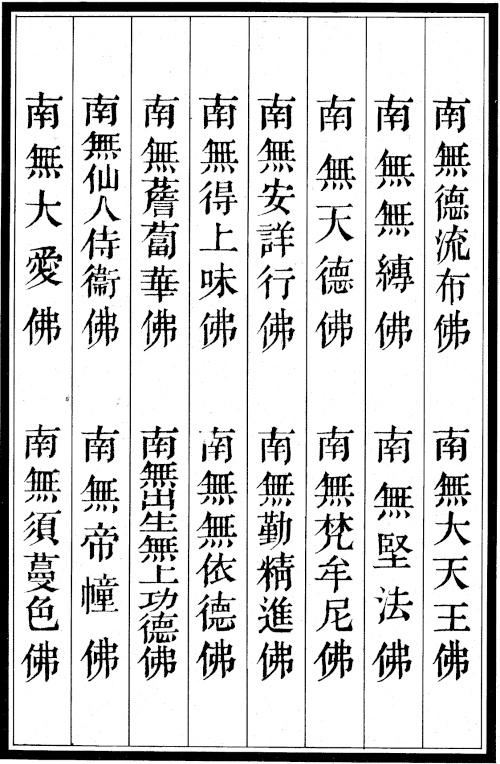 南無德流布佛
南無大天王佛
南無無縛佛
南無堅法佛
南無天德佛
南無梵牟尼佛
南無安詳行佛
南無勤精進佛
南無得上味佛
南無無依德佛
南無薝蔔華佛
南無出生無上功德佛
南無仙人侍衞佛
南無帝幢佛
南無大愛佛
南無須蔓色佛